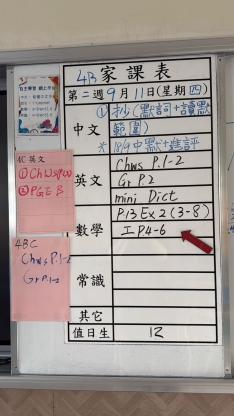 4B 家課表
第二週9月11日(星期四)
中文
① 抄(默詞+讀默範圍)
* 18/9中默+進評
英文
Chws P.1-2
Gr P.2
mini Dict
數學
P.13 Ex 2 (3-8)
工 P4-6
常識
其它
值日生
12
4C 英文
① Chws P.1-2
4BC
Chws P.1-2
Gr P.1-2